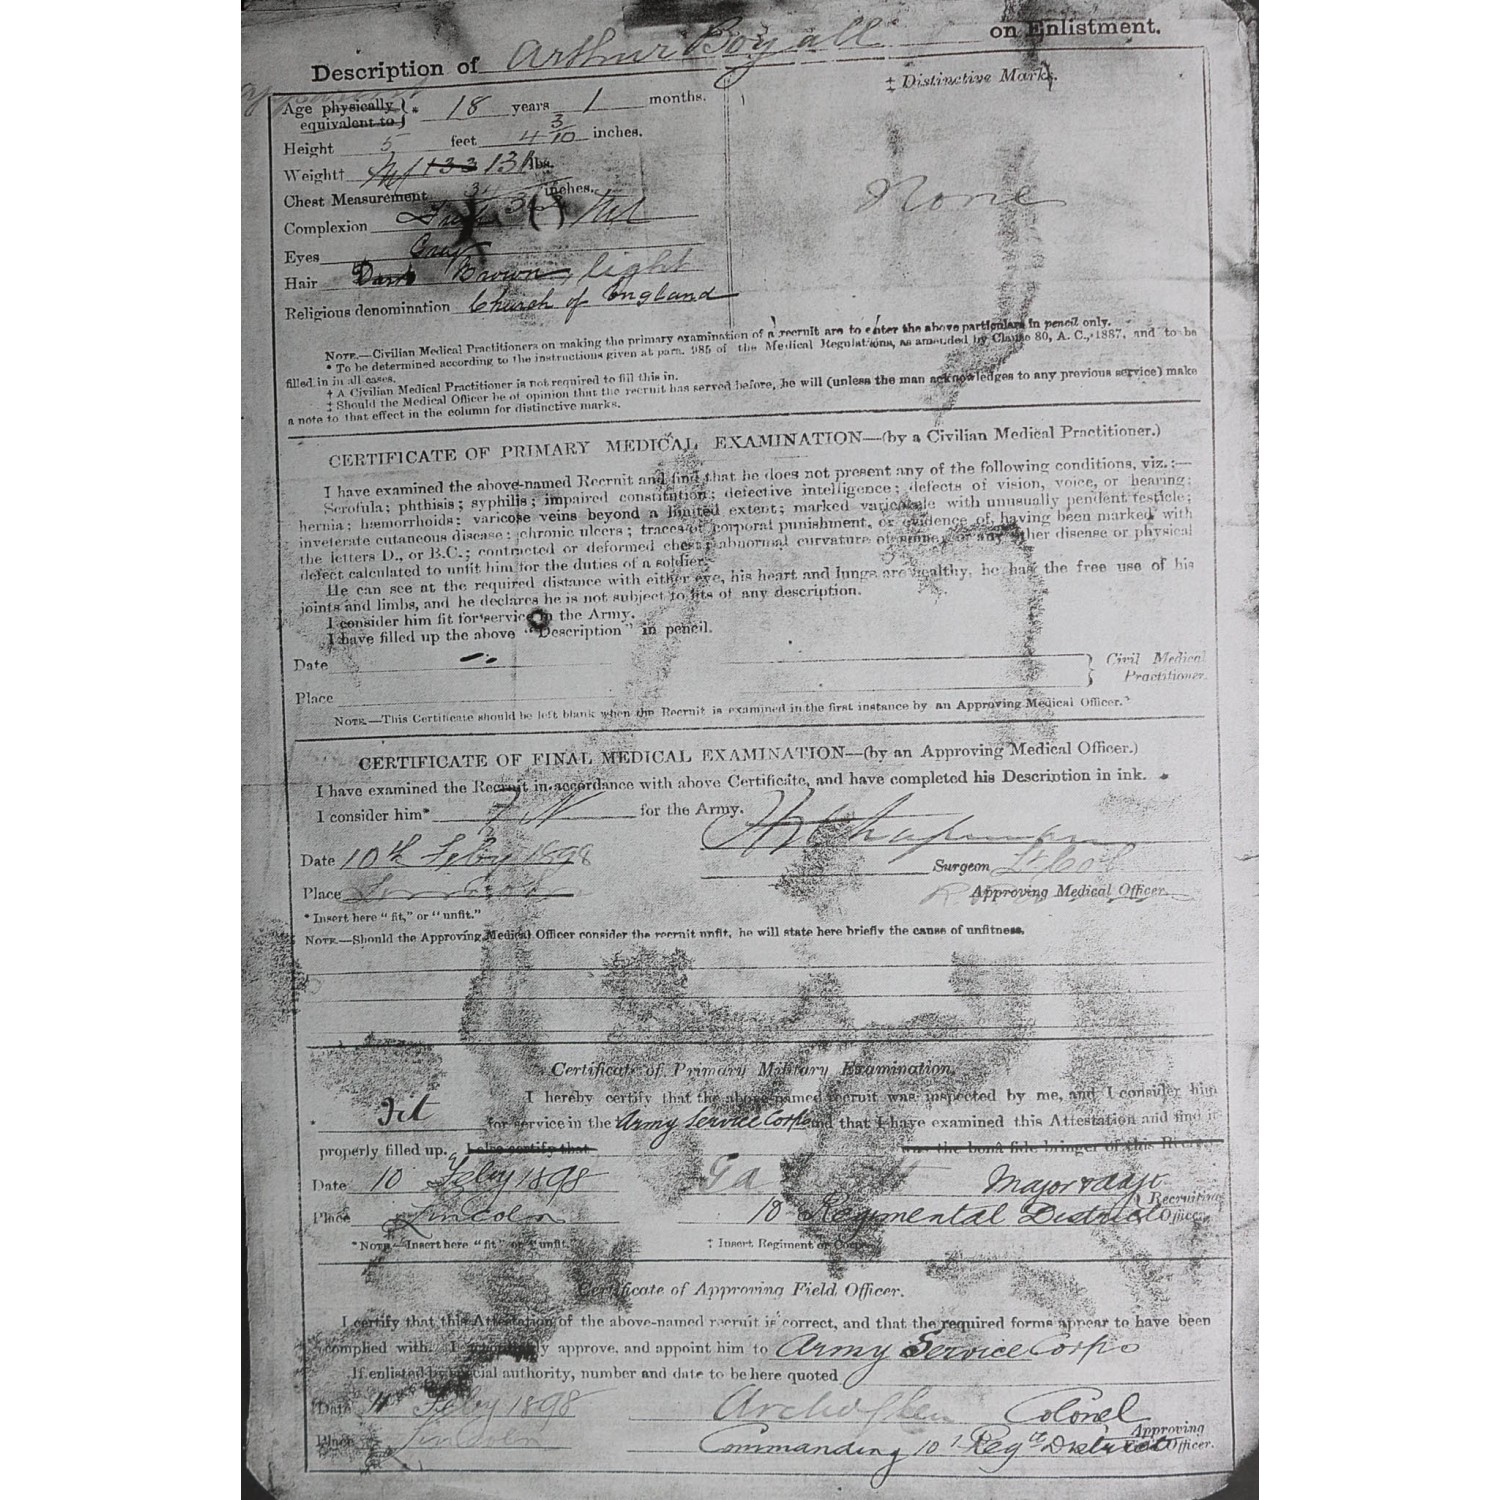 Description of Arthur Boyall on Enlistment.
Age physically equivalent to * 18 years 1 months.
‡ Distinctive Marks.
Height 5 feet 4 3/10 inches.
Weight† 133 131 lbs.
Chest Measurement 34 inches.
Complexion Fresh
None
Eyes Grey
Hair Dark Brown, light
Religious denomination Church of England
NOTE.—Civilian Medical Practitioners on making the primary examination of a recruit are to enter the above particulars in pencil only.
* To be determined according to the instructions given at para. 985 of the Medical Regulations, as amended by Clause 80, A. C., 1887, and to be
filled in in all cases.
† A Civilian Medical Practitioner is not required to fill this in.
‡ Should the Medical Officer be of opinion that the recruit has served before, he will (unless the man acknowledges to any previous service) make
a note to that effect in the column for distinctive marks.
CERTIFICATE OF PRIMARY MEDICAL EXAMINATION—(by a Civilian Medical Practitioner.)
I have examined the above-named Recruit and find that he does not present any of the following conditions, viz.:—
Scrofula; phthisis; syphilis; impaired constitution; defective intelligence; defects of vision, voice, or hearing;
hernia; hæmorrhoids; varicose veins beyond a limited extent; marked varicocele with unusually pendent testicle;
inveterate cutaneous disease; chronic ulcers; traces of corporal punishment, or evidence of having been marked with
the letters D., or B.C.; contracted or deformed chest; abnormal curvature of spine; or any other disease or physical
defect calculated to unfit him for the duties of a soldier.
He can see at the required distance with either eye, his heart and lungs are healthy, he has the free use of his
joints and limbs, and he declares he is not subject to fits of any description.
I consider him fit for service in the Army.
I have filled up the above "Description" in pencil.
Date
Civil Medical
Practitioner.
Place
NOTE.—This Certificate should be left blank when the Recruit is examined in the first instance by an Approving Medical Officer.
CERTIFICATE OF FINAL MEDICAL EXAMINATION—(by an Approving Medical Officer.)
I have examined the Recruit in accordance with above Certificate, and have completed his Description in ink.
I consider him* Fit for the Army.
Chapman
Date 10th Feby 1898
Surgeon Lt Col
Place Lincoln
Approving Medical Officer.
* Insert here "fit," or "unfit."
NOTE.—Should the Approving Medical Officer consider the recruit unfit, he will state here briefly the cause of unfitness.
Certificate of Primary Military Examination.
I hereby certify that the above-named recruit was inspected by me, and I consider him
* Fit for service in the Army Service Corps and that I have examined this Attestation and find it
properly filled up. I also certify that was the bonâ fide bringer of this Recruit
Date 10 Feby 1898 Major & Adjt
Place Lincoln 10 Regimental District Recruiting Officer.
* NOTE—Insert here "fit" or "unfit." † Insert Regiment or Corps.
Certificate of Approving Field Officer.
I certify that this Attestation of the above-named recruit is correct, and that the required forms appear to have been
complied with. I accordingly approve, and appoint him to Army Service Corps
If enlisted by special authority, number and date to be here quoted
Date 11 Feby 1898 Colonel
Place Lincoln Commanding 10th Regtl District Approving Field Officer.